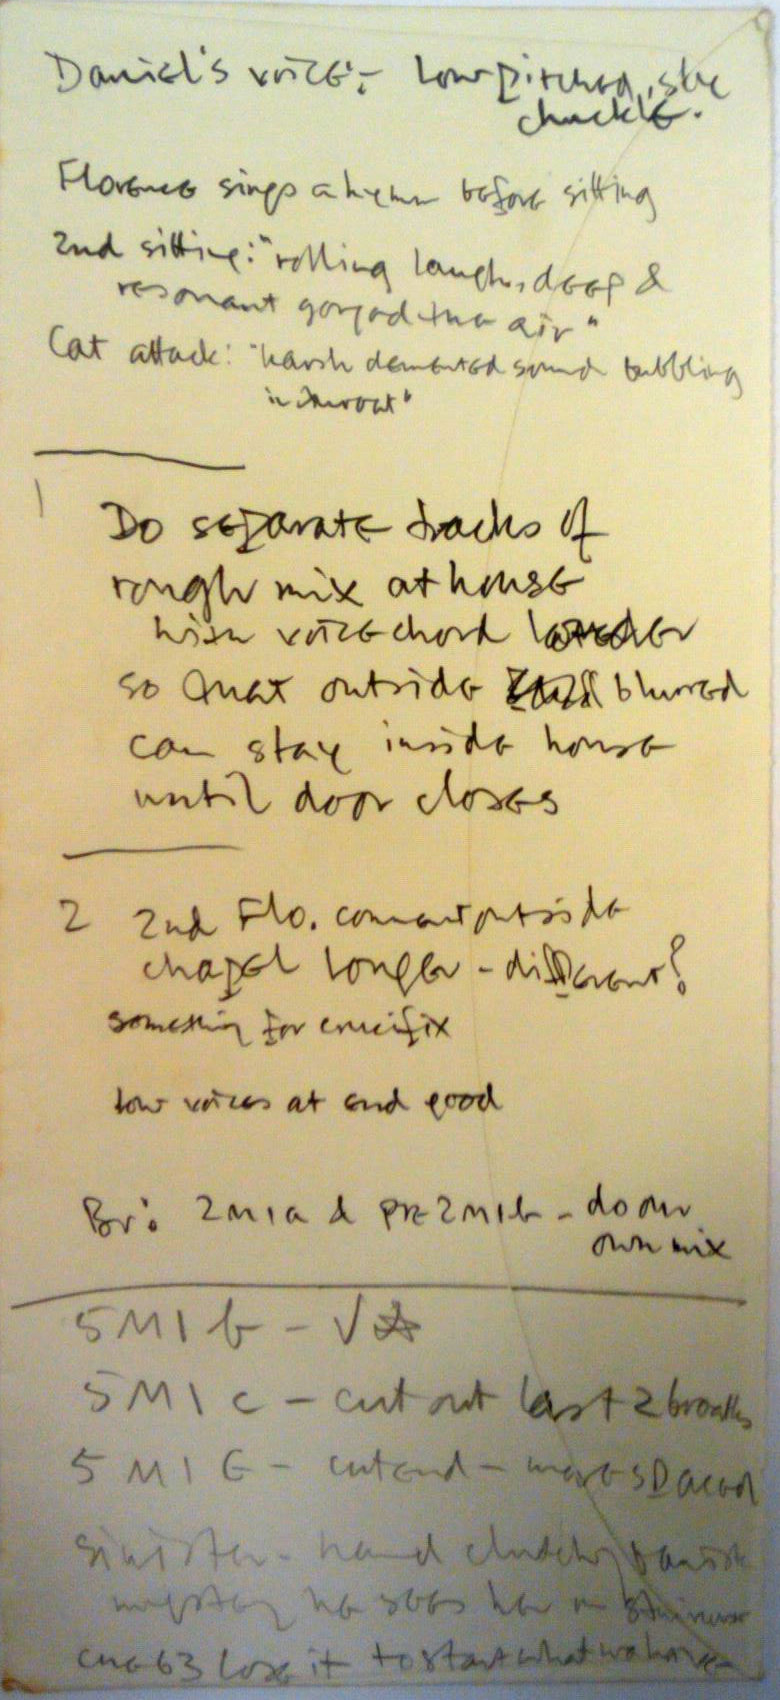 Daniel's voice:- low pitched, sly
chuckle.
Florence sings a hymn before sitting
2nd sitting: "rolling laugh, deep &
resonant gorged the air"
Cat attack: "harsh demented sound bubbling
in throat"
1 Do separate tracks of
rough mix at house
with voice chord louder
so that outside blurred
can stay inside house
until door closes
2 2nd Flo. comes outside
chapel longer - different?
something for crucifix
low voices at end good
Br: 2M1a & pre 2M1b - do our
own mix
5M1b - √
5M1c - cut out last 2 breaths
5M1E - cut end - more spaced
sinister - hand clutching
mystery he sees her on staircase
cue 63 lose it to start what we have